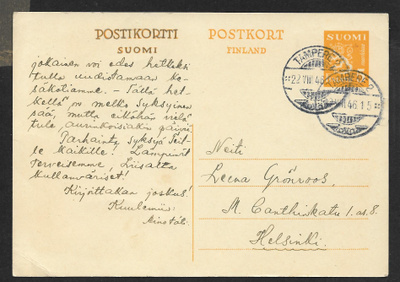 POSTIKORTTI
SUOMI
POSTKORT
FINLAND
SUOMI
TAMPERE 2
27.VIII.46
TAMPERE 2
46.15
jokainen voi edes hetkeksi
tulla uudistamaan ke-
säkotiamme. – Tällä het-
kellä on melko syksyinen
sää, mutta eiköhän vielä
tule aurinkoisiakin päiviä
Parhainta syksyä Teil-
le kaikille! Lämpimät
terveisemme, Liisalta
kullanväriset!
Kirjoittakaa joskus!
Kuulemiin:
Neiti
Leena Grönroos,
M. Canthinkatu 1. as. 8.
Helsinki.